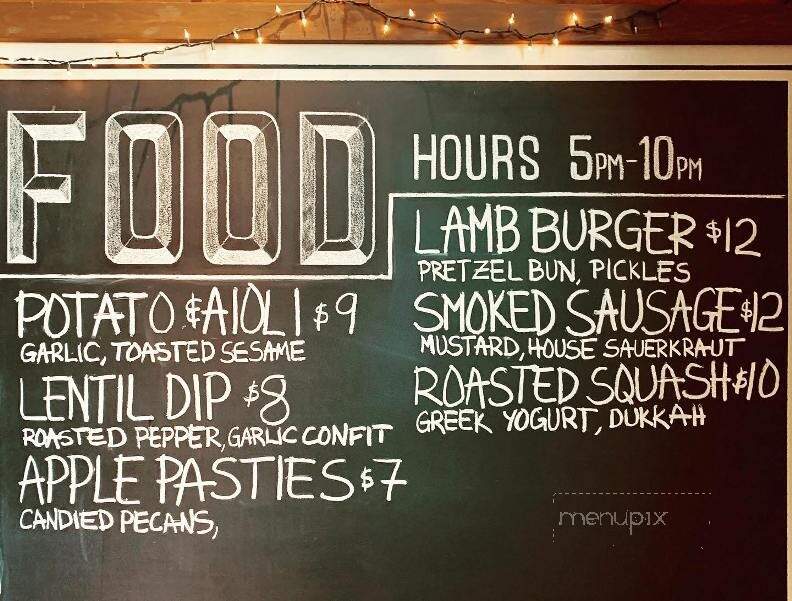 FOOD
HOURS 5PM-10PM
POTATO & AIOLI $9
GARLIC, TOASTED SESAME
LENTIL DIP $8
ROASTED PEPPER, GARLIC CONFIT
APPLE PASTIES $7
CANDIED PECANS,
LAMB BURGER $12
PRETZEL BUN, PICKLES
SMOKED SAUSAGE $12
MUSTARD, HOUSE SAUERKRAUT
ROASTED SQUASH $10
GREEK YOGURT, DUKKAH
menupix